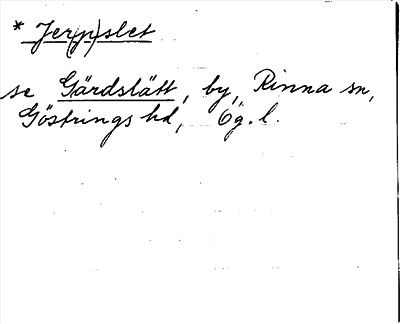 * Jer(p)slet
se Gärdslätt, by, Rinna sn,
Göstrings hd, Ög. l.